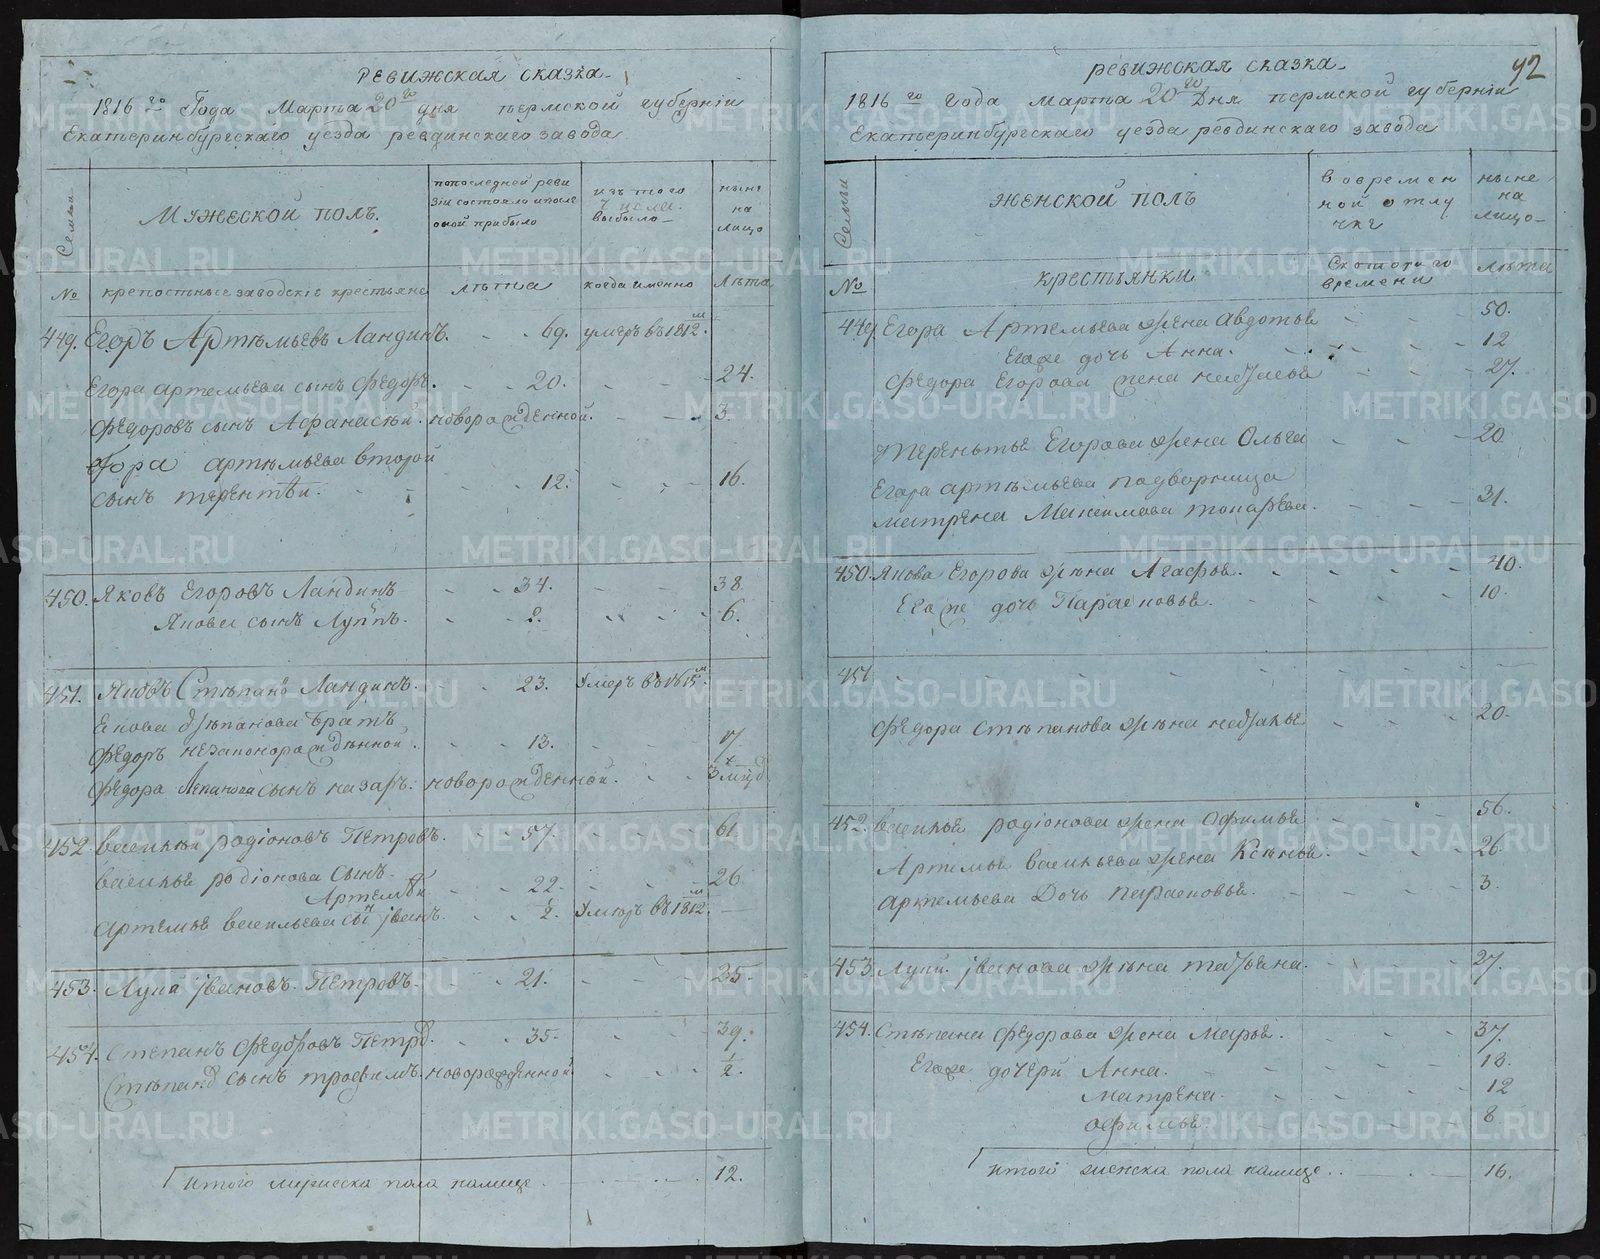 Ревижская сказка
1816 го Года Марта 20 го дня пермской губернiи
Екатеринбургскаго уезда ревдинскаго завода
Семьи
Мужеской полъ.
попоследней реви
зiи состояло ипосле
оной прибыло
изъ того
числа
выбыло
ныне
на
лицо
№
крепостные заводскiе крестьяне
лѣта
когда именно
Лѣта
449. Егоръ Артемьевъ Ландинъ. 69. умеръ въ 1812 м.
Егора артемьева сынъ Федоръ. 20. 24.
Федоровъ сынъ Афанасей. новорожденной. 3.
Егора артемьева второй
сынъ терентей. 12. 16.
450. Яковъ Егоровъ Ландинъ 34. 38.
Якова сынъ Луппъ. 2. 6.
451. Яковъ Степановъ Ландинъ. 23. Умеръ въ 1815 м.
Якова Степанова братъ
Федоръ незаконорожденной. 13. 17.
Федора сынъ назаръ. новорожденной. 3 мцд
452. василей родiоновъ Петровъ. 57. 61.
василья родiонова сынъ
Артемей 22. 26
Артемья васильева сынъ iванъ. 1/2. Умеръ въ 1812 м.
453. Лупа iвановъ Петровъ. 21. 25.
454. Степанъ Федоровъ Петровъ 35. 39.
Степана сынъ трофимъ. новорожденной 1/2.
Итого мужеска пола налице 12.
92
ревижская сказка
1816 го года марта 20 го Дня пермской губернiи
Екатеринбургскаго уезда ревдинскаго завода
Семьи
женской полъ
вовремен
ной отлу
чке
ныне
на
лицо
№
крестьянки
Скотораго
времени
лѣта
449. Егора Артемьева жена Авдотья 50.
Егоже дочь Анна. 12
Федора Егорова жена наталья 27.
Терентья Егорова жена Ольга 20
Егора артемьева подворница
матрена Максимова токарева. 31.
450. Якова Егорова жена Агафья. 40.
Егоже дочь Парасковья. 10.
451
Федора степанова жена наталья 20.
452. василья родiонова жена Офимья 56.
Артемья васильева жена Ксенья. 26.
артемьева Дочь парасковья. 3.
453. Лупы iванова жена татьяна. 27.
454. Степана Федорова жена Марья. 37.
Егоже дочери Анна. 18.
матрена. 12
офимья 8
Итого женска пола налице 16.
METRIKI.GASO-URAL.RU